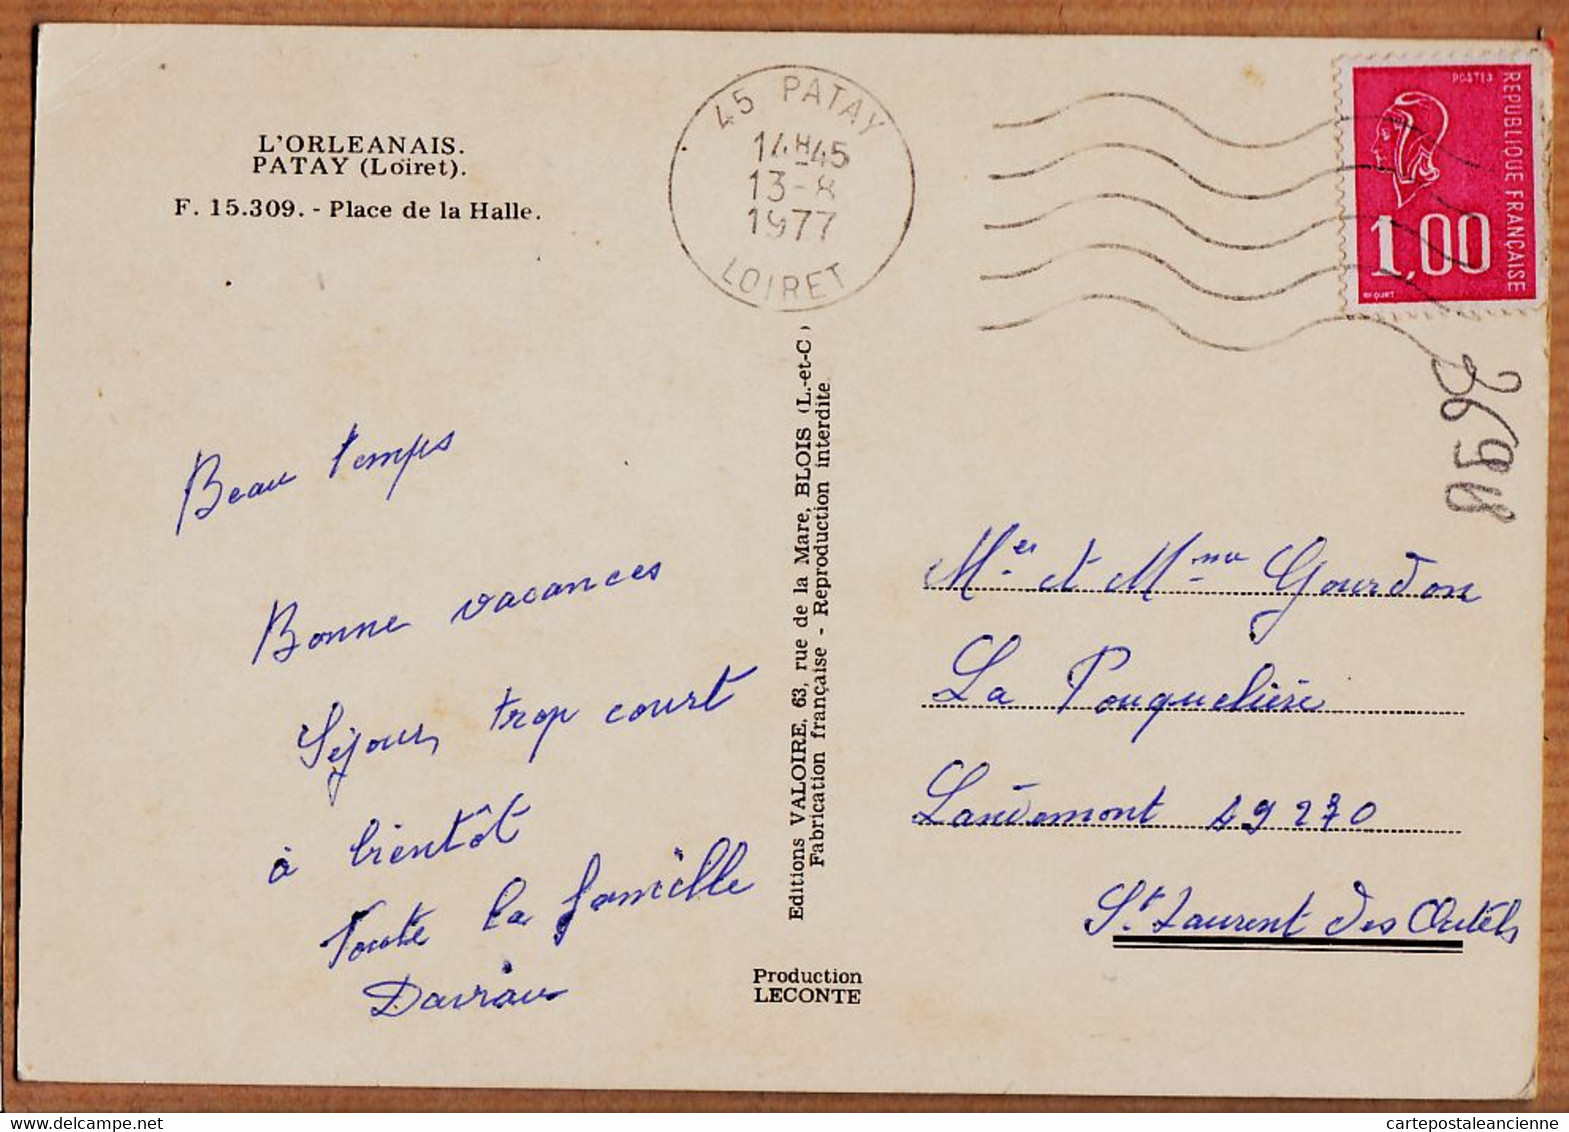 L'ORLEANAIS.
PATAY (Loiret).
F. 15.309. - Place de la Halle.
45 PATAY
14H45
13-8
1977
LOIRET
POSTES
REPUBLIQUE FRANÇAISE
1,00
BEQUET
Beau temps
Bonne vacances
Séjour trop court
à bientôt
Toute la famille
Editions VALOIRE, 63, rue de la Mare, BLOIS (L.-et-C)
Fabrication française - Reproduction interdite
Production
LECONTE
Mer et Mme Gourdon
La Pouquelière
Landemont 49270
St Laurent des Autels
cartepostaleancienne